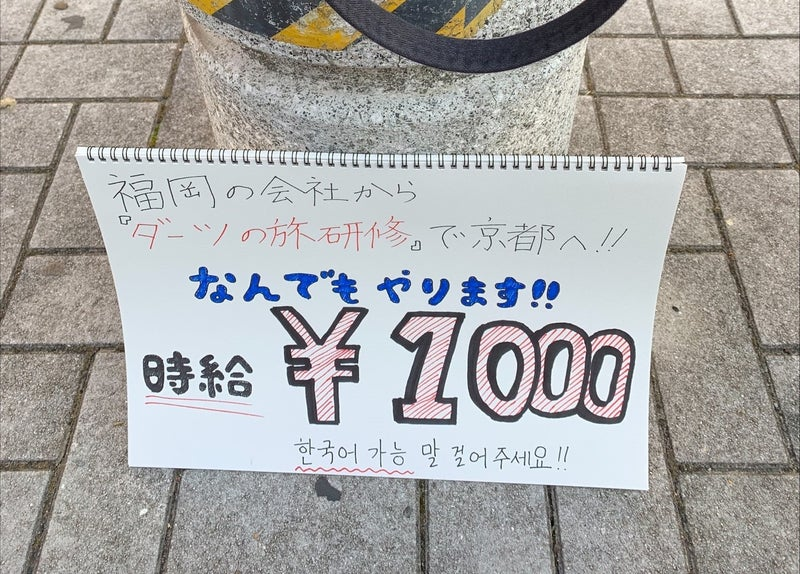 福岡の会社から
『ダーツの旅研修』で京都へ!!
なんでもやります!!
時給 ¥1000
한국어 가능 말 걸어주세요!!